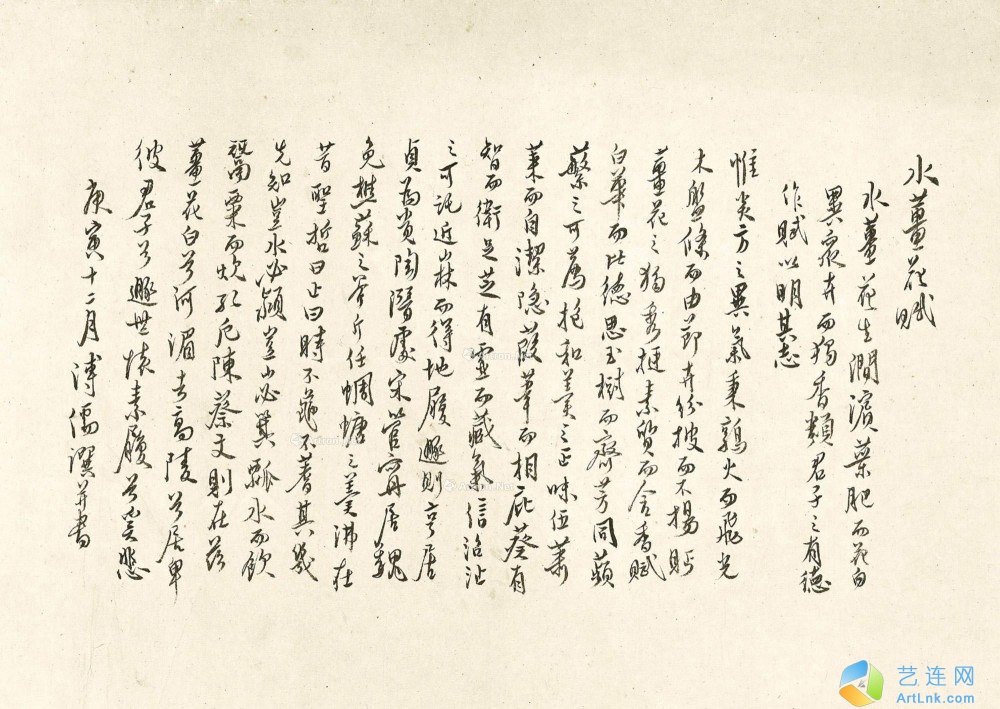 水薑花賦
水薑花生澗濱葉肥而花白
異眾卉而獨香類君子之有德
作賦以明其志
惟炎方之異氣秉鶉火而飛光
木盤條而由節卉紛披而不揚眄
薑花之獨秀挺素質而含香賦
白華而比德思玉樹而齊芳同蘋
蘩之可薦挹和羹之正味伍蕭
萊而自潔隱葭葦而相庇葵有
智而衛足芝有靈而藏氣信沼沚
之可託近林而得地履遯則亨居
貞為貴陶潛處宋管寧居魏
免樵蘇之斧斤任蜩螗之羹沸在
昔聖哲曰止曰時不龜不蓍其幾
先知豈水必潁豈山必箕瓢水而飲
鬻粟而炊孔厄陳蔡文則在茲
薑花白兮河湄去高陵兮居卑
彼君子兮遯世懷素履兮奚悲
庚寅十二月溥儒譔并書
艺连网
ArtLnk.com